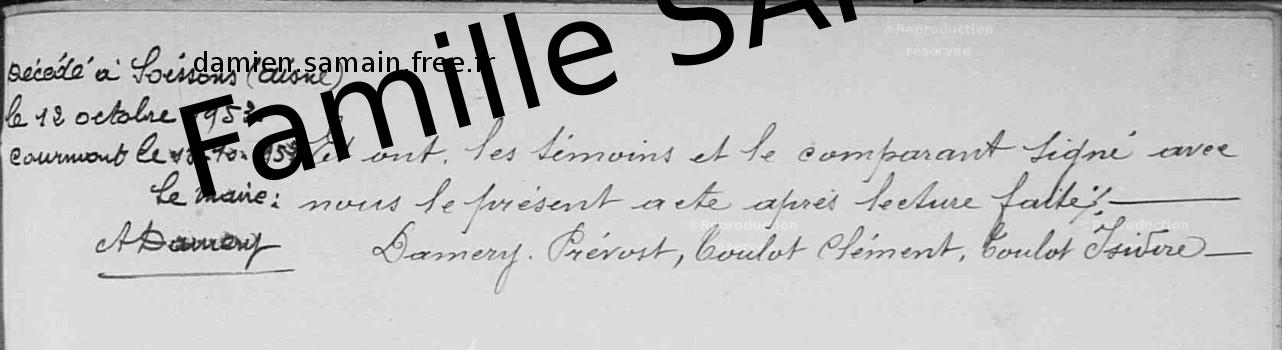 ©Reproduction
réservée
Famille SA
damien.samain.free.fr
Décédé à Soissons (Aisne)
le 12 octobre
Courmont le
Le Maire:
ADamery
Et ont, les témoins et le comparant signé avec
nous le présent acte après lecture faite./.
Damery. Prévost, Coulot Clément, Coulot
©Reproduction
©Reproduction